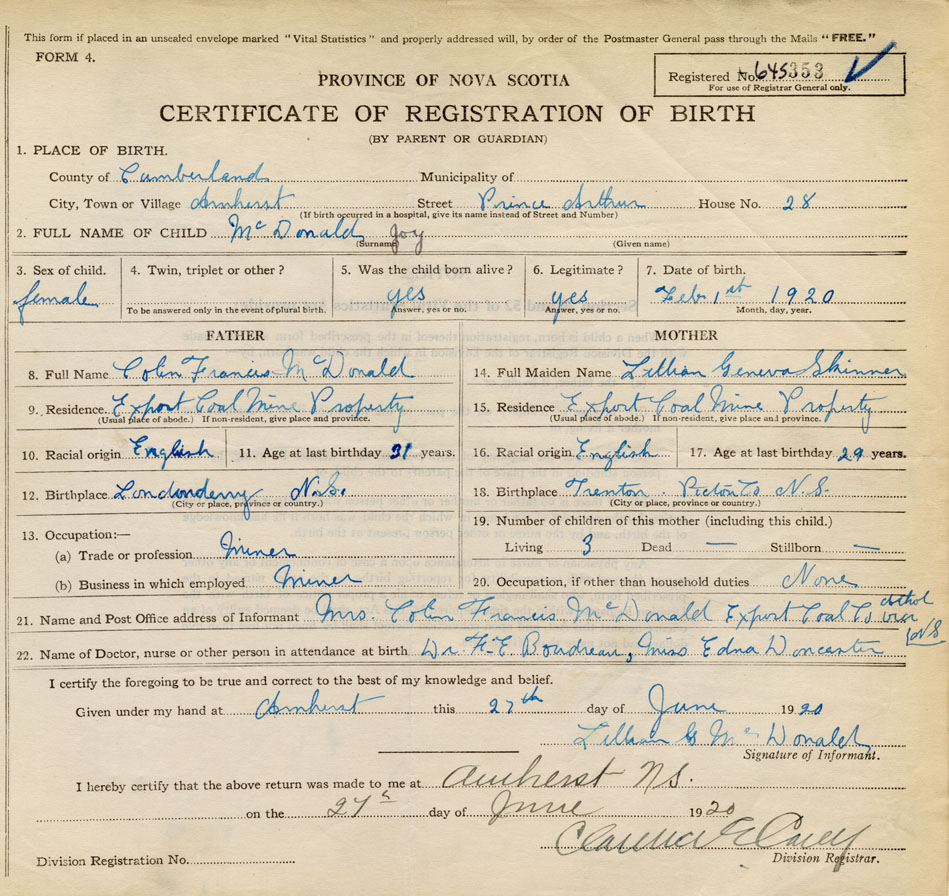 This form if placed in an unsealed envelope marked "Vital Statistics" and properly addressed will, by order of the Postmaster General pass through the Mails "FREE."
FORM 4.
Registered No. 645353
For use of Registrar General only.
PROVINCE OF NOVA SCOTIA
CERTIFICATE OF REGISTRATION OF BIRTH
(BY PARENT OR GUARDIAN)
1. PLACE OF BIRTH.
County of Cumberland Municipality of
City, Town or Village Amherst Street Prince Arthur House No. 28
(If birth occurred in a hospital, give its name instead of Street and Number)
2. FULL NAME OF CHILD McDonald Joy
(Surname) (Given name)
3. Sex of child. 4. Twin, triplet or other? 5. Was the child born alive? 6. Legitimate? 7. Date of birth.
female yes yes Feb 1st 1920
To be answered only in the event of plural birth. Answer, yes or no. Answer, yes or no. Month, day, year.
FATHER MOTHER
8. Full Name Colin Francis McDonald 14. Full Maiden Name Lillian Geneva Skinner
9. Residence Export Coal Mine Property 15. Residence Export Coal Mine Property
(Usual place of abode.) If non-resident, give place and province. (Usual place of abode.) If non-resident, give place and province.
10. Racial origin English 11. Age at last birthday 31 years. 16. Racial origin English 17. Age at last birthday 29 years.
12. Birthplace Londonderry N.S. 18. Birthplace Trenton. Pictou Co N.S.
(City or place, province or country.) (City or place, province or country.)
13. Occupation:— 19. Number of children of this mother (including this child.)
(a) Trade or profession Miner Living 3 Dead — Stillborn —
(b) Business in which employed Miner 20. Occupation, if other than household duties None
21. Name and Post Office address of Informant Mrs. Colin Francis McDonald Export Coal Co NS
22. Name of Doctor, nurse or other person in attendance at birth Dr. F. E. Boudreau, Miss Edna Doncaster
I certify the foregoing to be true and correct to the best of my knowledge and belief.
Given under my hand at Amherst this 27th day of June 1920
Lillian G McDonald
Signature of Informant.
I hereby certify that the above return was made to me at Amherst NS.
on the 27th day of June 1920
Division Registration No. Division Registrar.